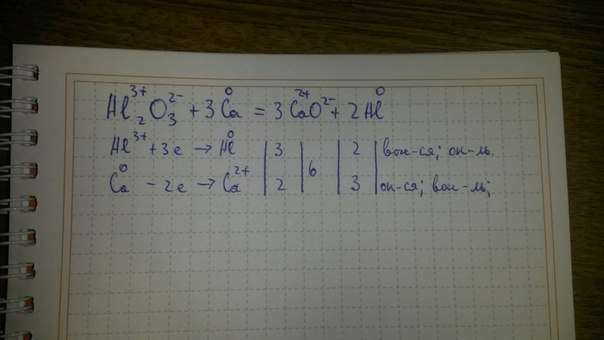 Al₂³⁺O₃²⁻ + 3Ca⁰ = 3Ca²⁺O²⁻ + 2Al⁰
Al³⁺ + 3e → Al⁰ | 3 | 6 | 2 | вос-ся; ок-ль.
Ca⁰ - 2e → Ca²⁺ | 2 | | 3 | ок-ся; вос-ль;